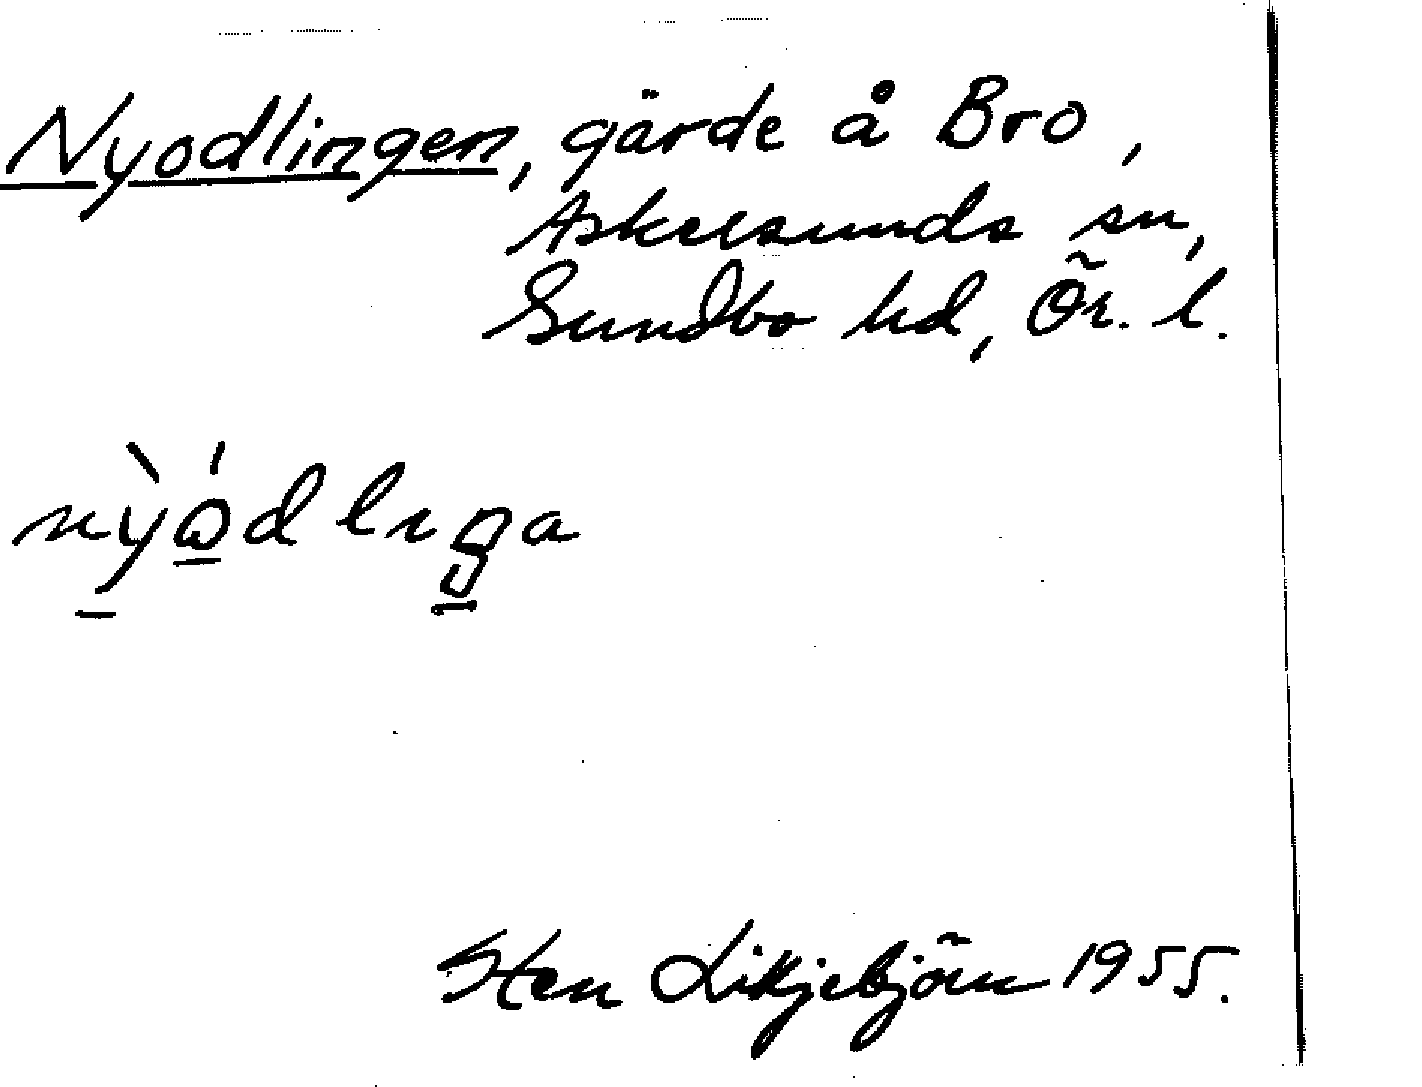 Nyodlingen, gärde å Bro,
Askersunds sn,
Sundbo hd, Ör. l.
nỳódlıŋa
Sten Liljebjörn 1955.